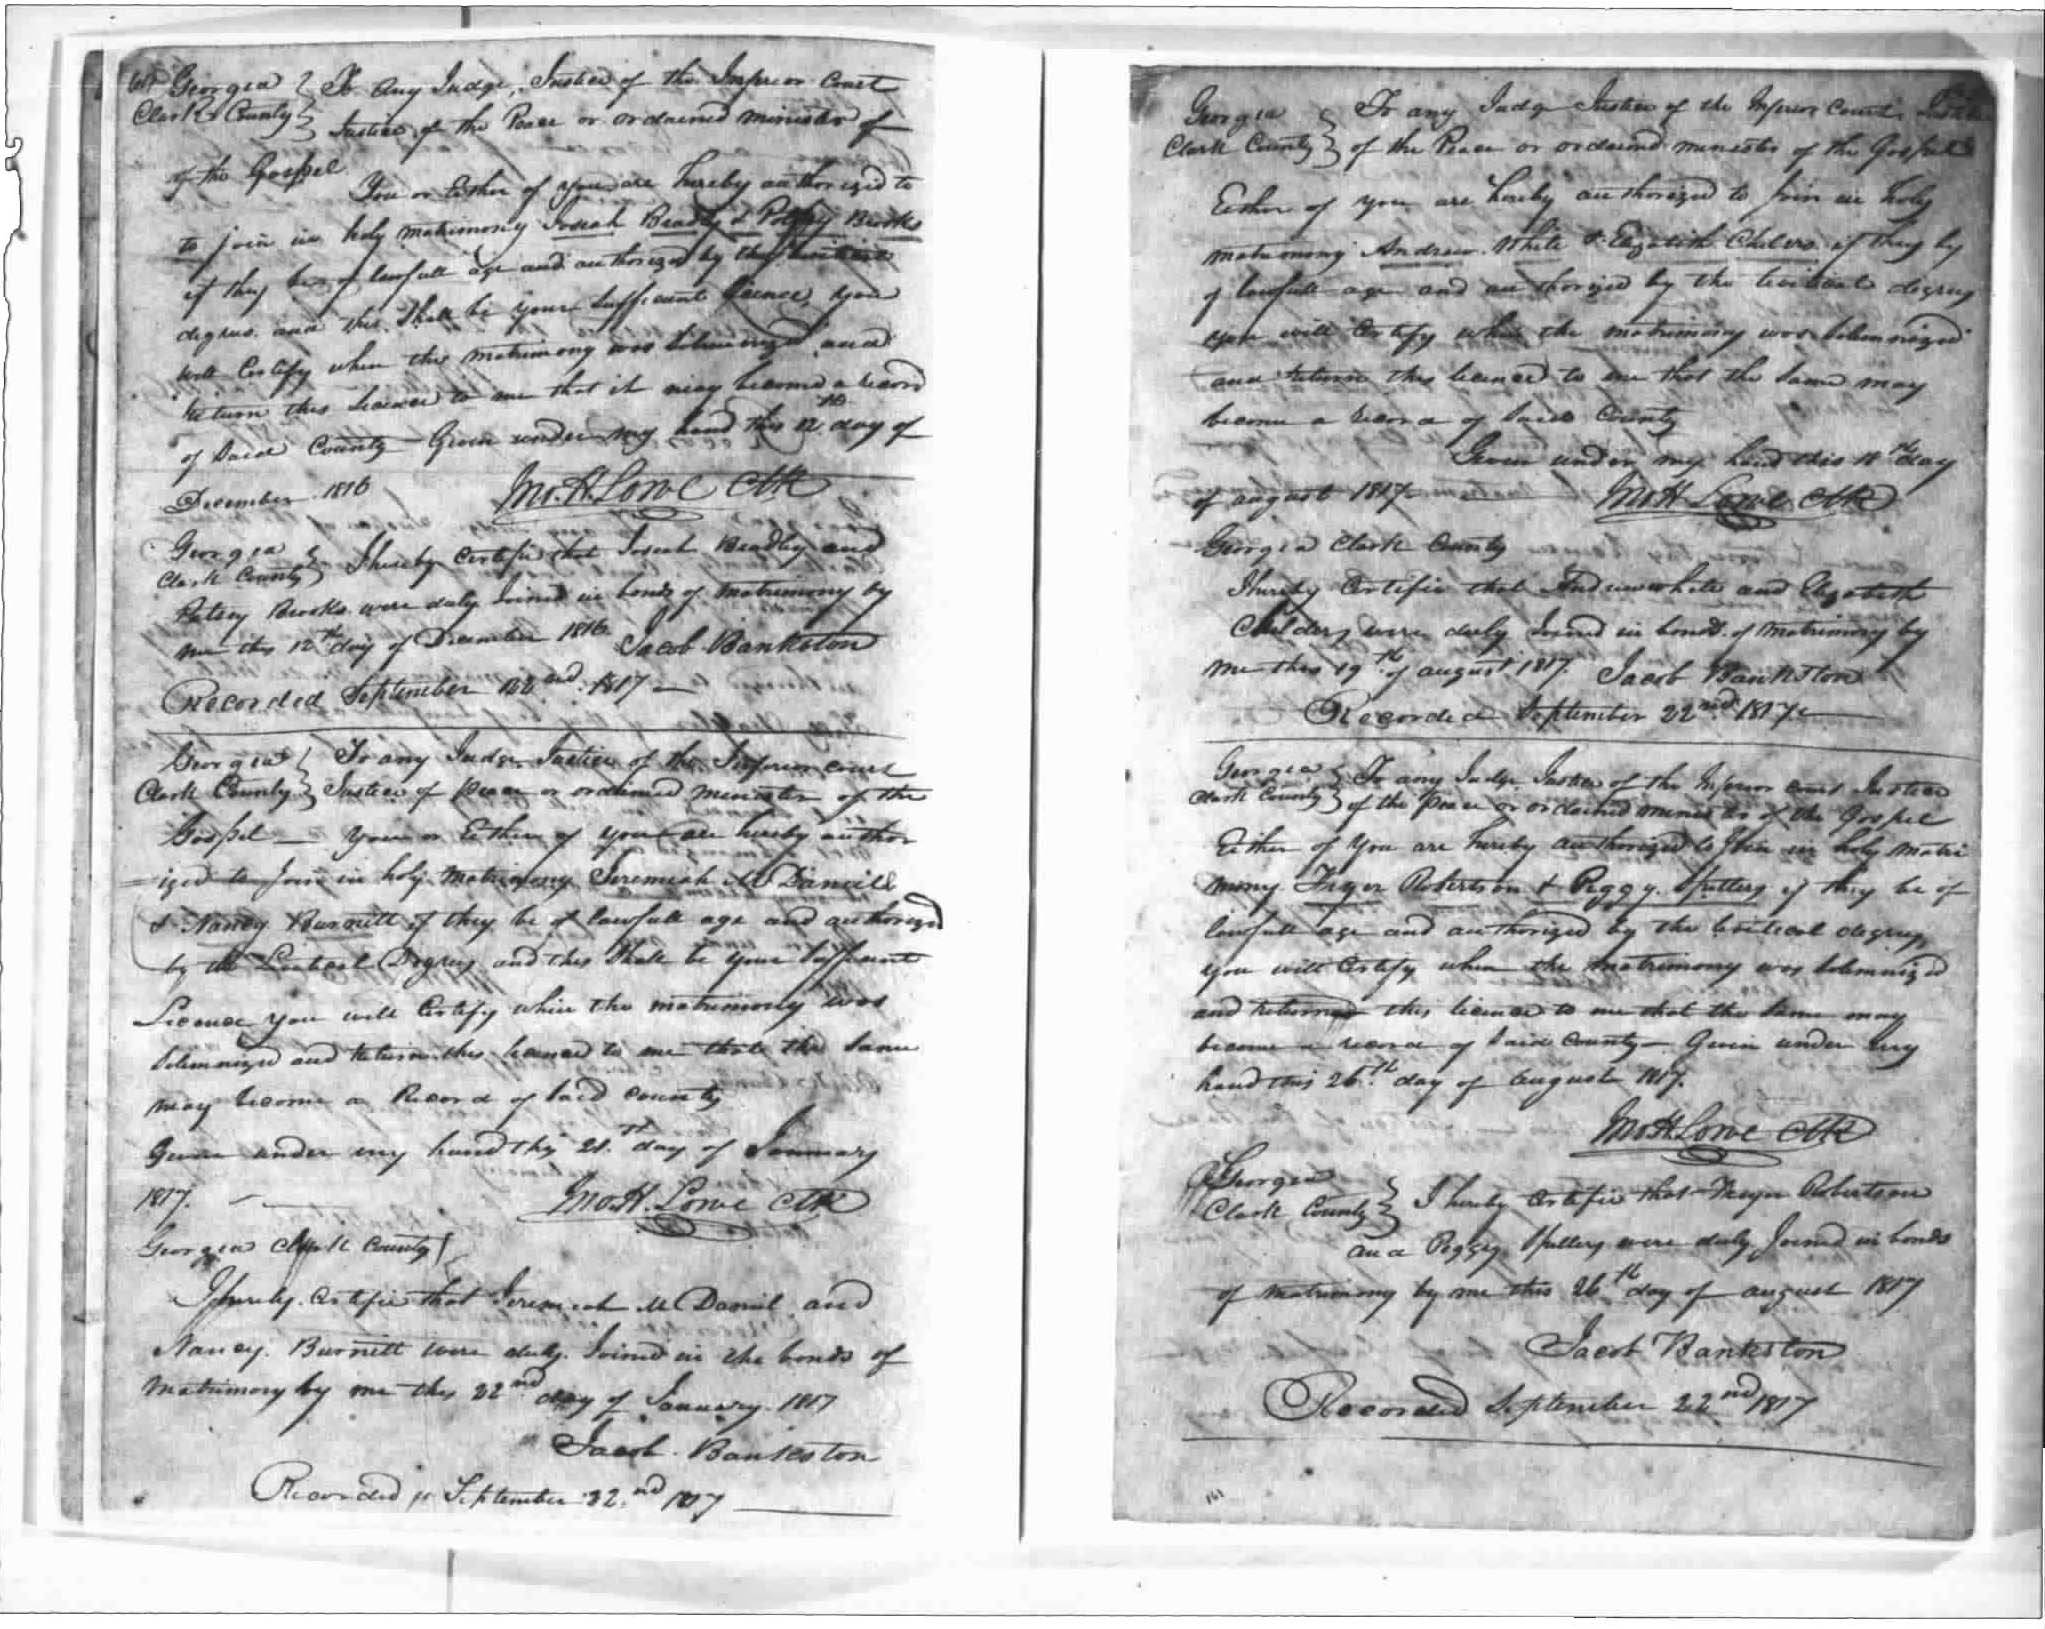 Georgia } To any Judge, Justice of the Inferior Court
Clark County } Justice of the Peace or ordained minister of
of the Gospel
You or Either of you are hereby authorized to
to join in holy matrimony Josiah Bradly & Patsy Brooks
if they be of lawfull age and authorized by the Levitical
degrees and this Shall be your Sufficient licence you
will Certify when this matrimony was Solemnized and
Return this licence to me that it may become a record
of Said County Given under my hand this 12th day of
December 1816 Jno. H. Lowe Clk
Georgia
Clark County } I hereby Certifie that Josiah Bradley and
Patsey Brooks were duly Joined in bonds of Matrimony by
me this 12th day of December 1816 Jacob Bankston
Recorded September 22nd 1817
Georgia } To any Judge Justice of the Inferior court
Clark County } Justice of peace or ordained minister of the
Gospel — you or Either of you are hereby author
ized to Join in holy Matrimony Jeremiah McDaniel
& Nancy Burnett if they be of lawfull age and authorized
by the Levitical Degrees and this Shall be your Sufficient
Licence you will Certify when the matrimony was
Solemnized and Return this licence to me that the Same
may become a Record of Said County
Given under my hand this 21st day of January
1817. Jno. H. Lowe Clk
Georgia Clark County }
I hereby Certifie that Jeremiah McDaniel and
Nancy Burnett were duly Joined in the bonds of
Matrimony by me this 22nd day of January 1817
Jacob Bankston
Recorded September 22nd 1817
Georgia } To any Judge Justice of the Inferior Court Justice
Clark County } of the Peace or ordained minister of the Gospel
Either of you are hereby authorized to Join in holy
matrimony Andrew White & Elizabeth Childers if they by
of lawfull age and authorized by the levitical degrees
you will Certify when the matrimony was Solemnized
and return this licence to me that the Same may
become a record of Said County
Given under my hand this 18th day
of august 1817 Jno H Lowe Clk
Georgia Clark County
I hereby Certifie that Andrew White and Elizabeth
Childers were duly Joined in bonds of Matrimony by
me this 19th of august 1817. Jacob Bankston
Recorded September 22nd 1817
Georgia } To any Judge Justice of the Inferior court Justice
Clark County } of the peace or ordained minister of the Gospel
Either of you are hereby authorized to Join in holy Matri
mony Robertson & Peggy if they be of
lawfull age and authorized by the levitical degrees
you will Certify when the matrimony was Solemnized
and returned this licence to me that the Same may
become a record of Said County — Given under my
hand this 26th day of August 1817.
Jno H Lowe Clk
Georgia
Clark County } I hereby Certifie that Robertson
and Peggy were duly Joined in bonds
of Matrimony by me this 26th day of august 1817
Jacob Bankston
Recorded September 22nd 1817
161